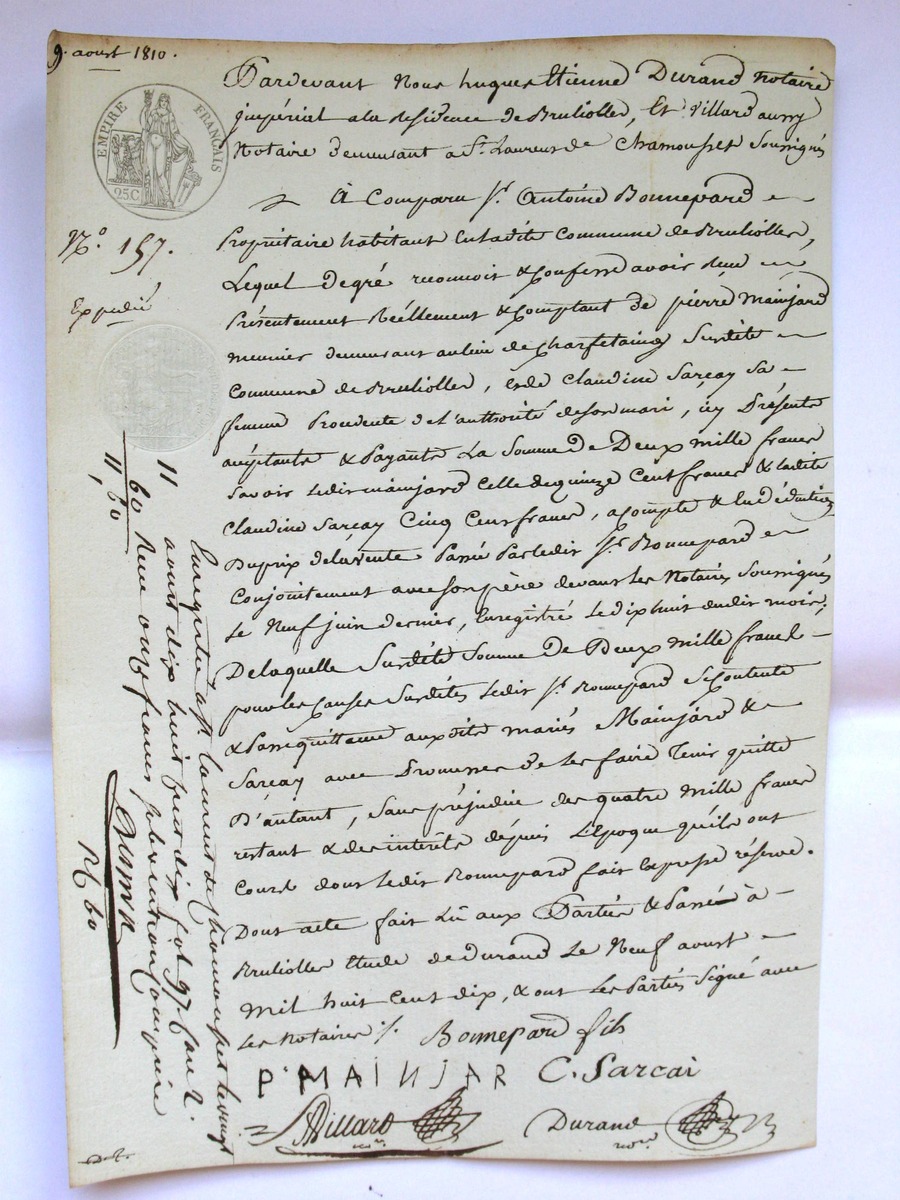 9. aoust 1810.
EMPIRE FRANÇAIS
25C
N.º 157.
Expedié
Pardevant Nous hugues Etienne Durand Notaire
jmpérial a la Residence de Brulioller, Et Villard
Notaire demeurant a S.t Laurent de Chamousset Soussignés
A Comparu S.r Antoine Bonnepard
Propriétaire habitant en ladite Commune de Brulioller,
Lequel de gré reconnoit & Confesse avoir Reçu
Présentement Réellement & Comptant de pierre Mainjard
meunier demeurant au lieu de Charfetaing Susdite
Commune de Brulioller, & de Claudine Sarçay Sa
femme Procédente de l'authorité de son mari, icy Présents
acceptants & Payants La Somme de Deux mille francs
Savoir ledit mainjard Celle de quinze Cent francs & ladite
Claudine Sarçay Cinq Cent francs, a Compte & en déduction
Du prix de la vente Passé Par ledit S.r Bonnepard
Conjointement avec son père devant les Notaires Soussignés
Le Neuf juin dernier, Enregistré le dix huit dudit mois,
De laquelle Susdite Somme de Deux mille francs
pour les Causes Susdites ledit S.r Bonnepard Se Contente
& Passe quittance auxdits mariés Mainjard &
Sarçay avec Promesse de les faire Tenir quitte
D'autant, Sans préjudice des quatre mille francs
restant & des intérêts dépuis L'Epoque qu'ils ont
Cours dont ledit Bonnepard fait Expresse réserve.
Dont acte fait Lû aux Parties & Passé à
Brulioller Etude de Durand Le Neuf aoust
Mil huit Cent dix, & ont les Parties Signé avec
Les Notaires
Bonnepard fils
P MAINJAR C. Sarcai
Villard
Durand
Enregistré a S.t Laurent de Chamousset le vingt
aoust dix huit cent dix fol 97 Case 2.
Reçu onze francs Subvention Comprise
11
60
11, 60